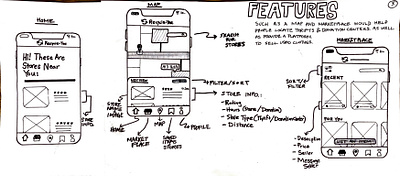 HOME
Recycle-Tee
Hi! These are
Stores Near
You:
STORE
INFO.
MAP
Recycle-Tee
SEARCH
FOR
STORES
FILTER/SORT
STORE INFO:
- Rating
- Hours (Store/Donation)
- Store Type (Thrift/Donation/etc)
- Distance
STORE
IMAGE
HOME
MARKET
PLACE
MAP
SAVED
ITEMS
STORES
PROFILE
FEATURES
SUCH AS A MAP AND MARKETPLACE WOULD HELP
PEOPLE LOCATE THRIFTS & DONATION CENTERS, AS WELL
AS PROVIDE A PLATFORM
TO SELL USED CLOTHES.
MARKETPLACE
SORT/
FILTER
RECENT
FOR YOU
- Description
- Price
- Seller
- Message
Seller